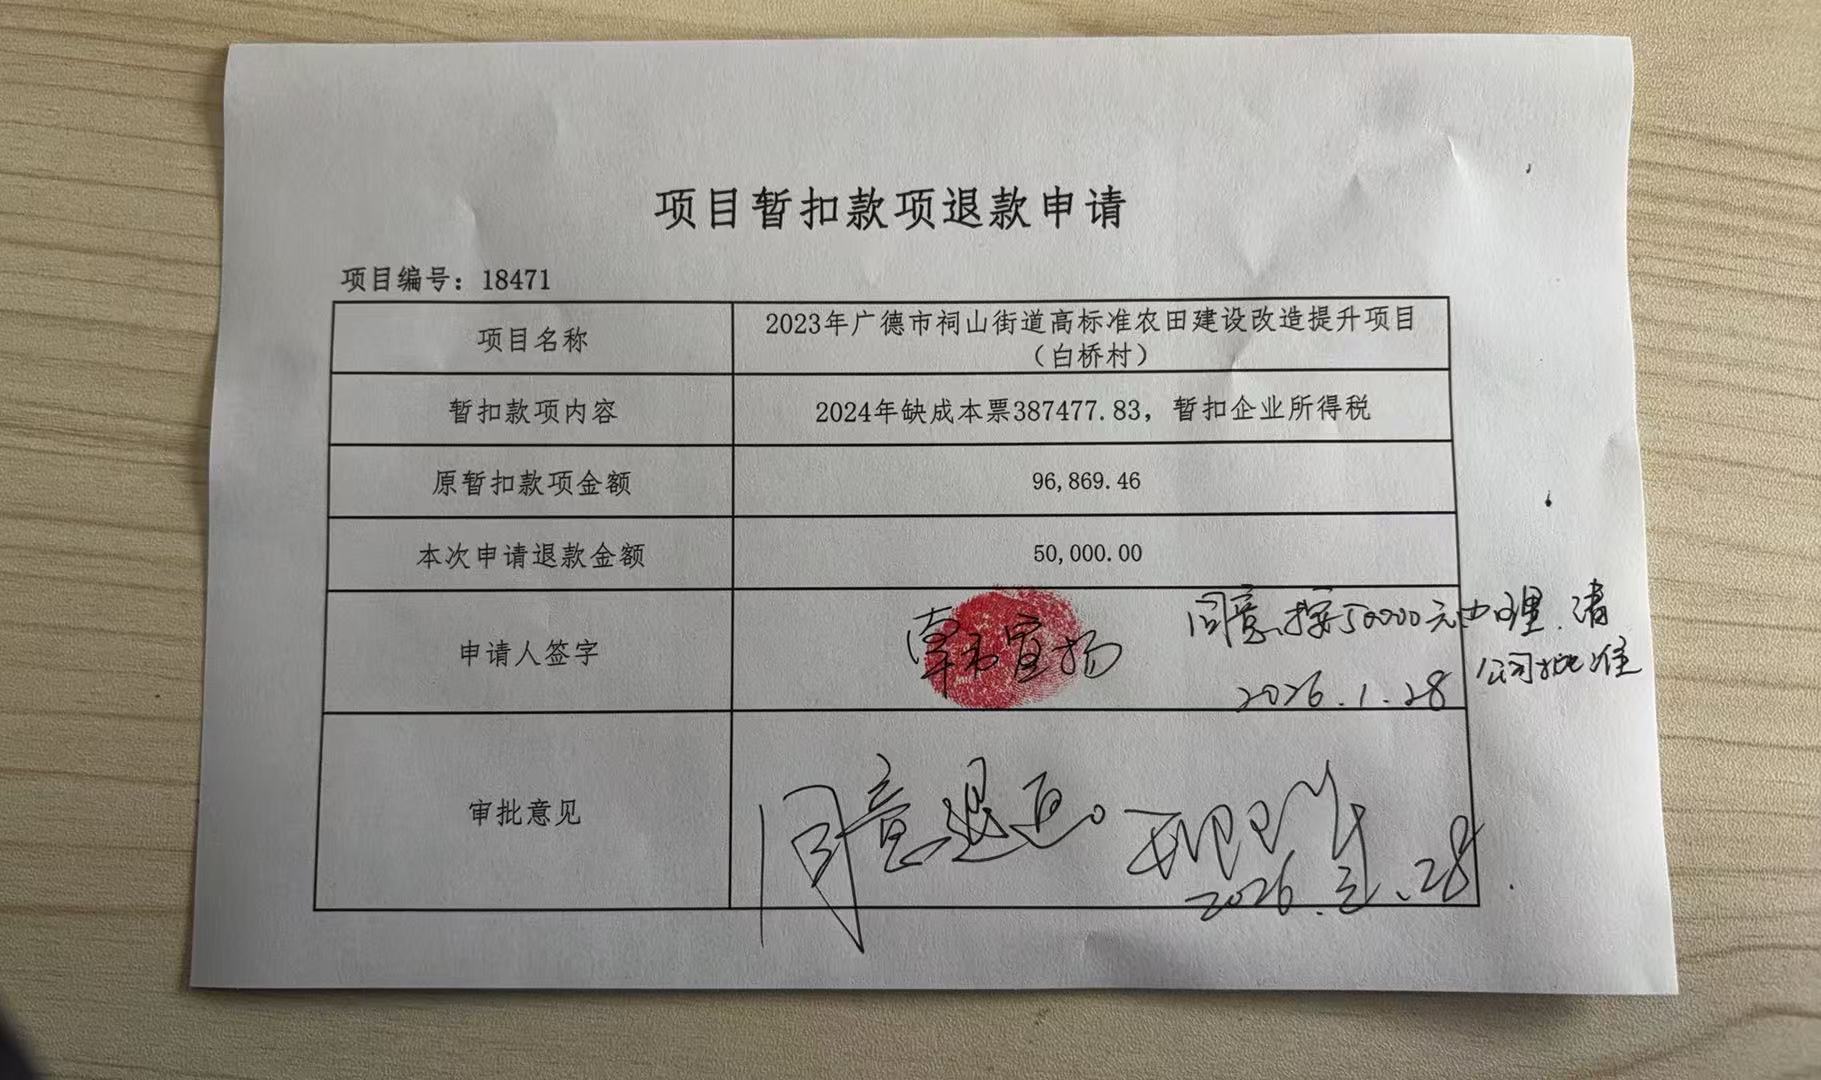 项目暂扣款项退款申请
项目编号：18471
项目名称
2023年广德市祠山街道高标准农田建设改造提升项目
（白桥村）
暂扣款项内容
2024年缺成本票387477.83，暂扣企业所得税
原暂扣款项金额
96,869.46
本次申请退款金额
50,000.00
申请人签字
宣扬
同意按50000元办理，请
公司批准
2026.1.28
审批意见
同意退返。
2026. .28